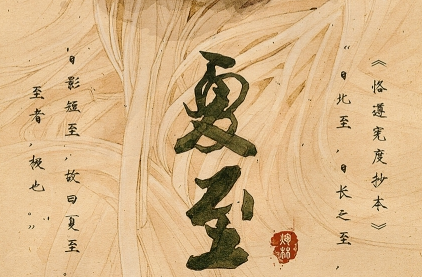 《恪遵宪度抄本》
“日北至，日长之至，
夏至
日影短至，故曰夏至。
至者，极也。”